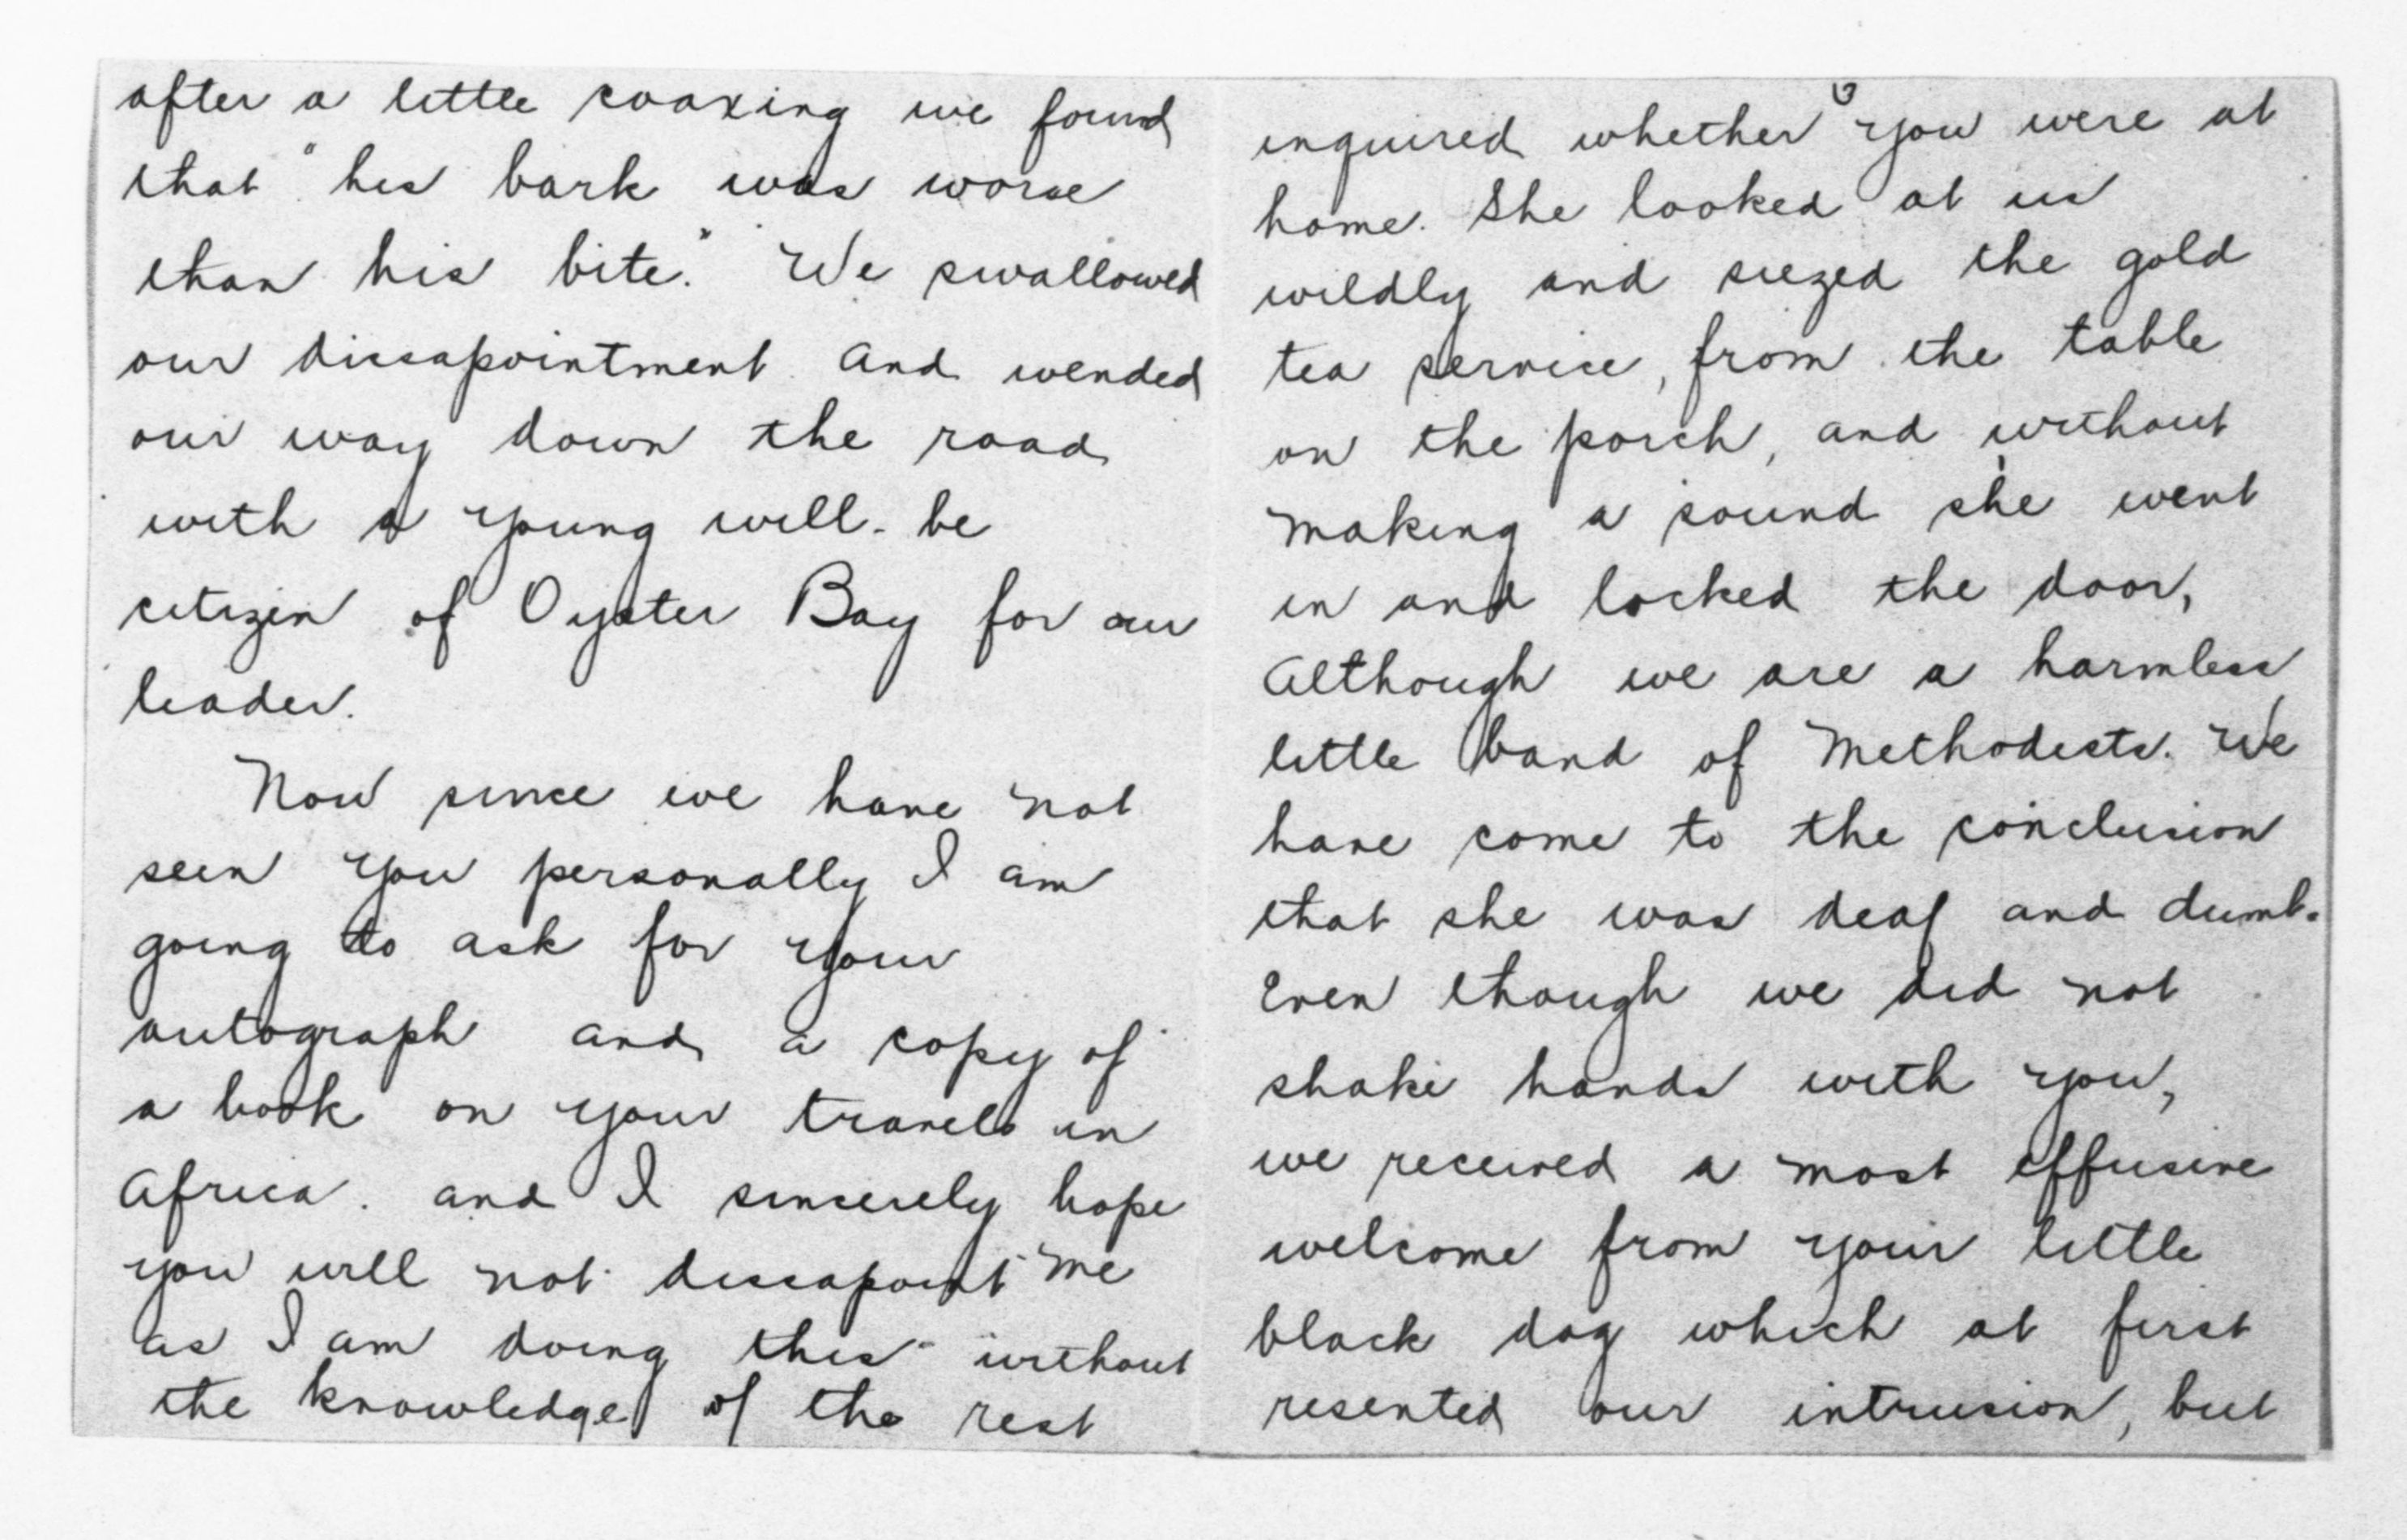 after a little coaxing we found
that "his bark was worse
than his bite." We swallowed
our dissapointment and wended
our way down the road
with a young will-be
citizen of Oyster Bay for our
leader.
Now since we have not
seen you personally I am
going to ask for your
autograph and a copy of
a book on your travels in
Africa. and I sincerely hope
you will not dissapoint me
as I am doing this without
the knowledge of the rest
3
inquired whether you were at
home. She looked at us
wildly and siezed the gold
tea service, from the table
on the porch, and without
making a sound she went
in and locked the door,
Although we are a harmless
little band of Methodists. We
have come to the conclusion
that she was deaf and dumb.
Even though we did not
shake hands with you,
we received a most effusive
welcome from your little
black dog which at first
resented our intrusion, but